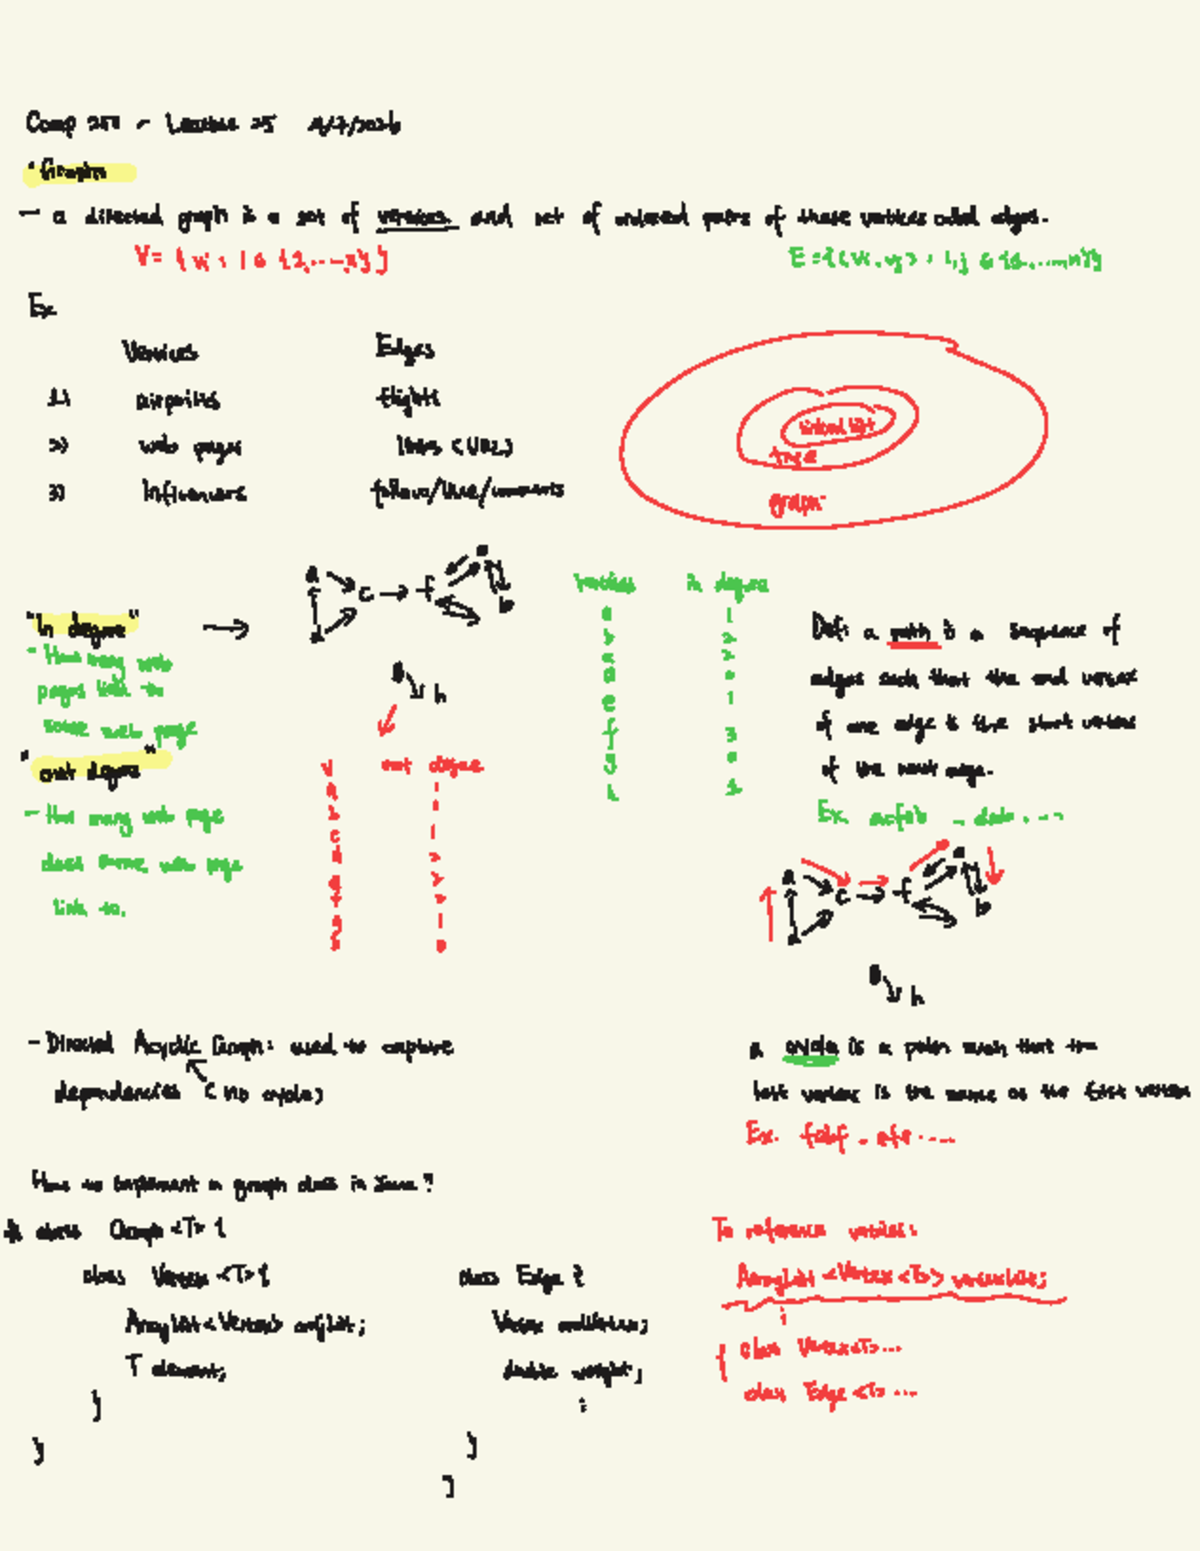 Comp 250 - Lecture 25
Graphs
- a directed graph is a set of vertices and set of ordered pairs of these vertices called edges.
V = {
E = {(
Ex
Vertices Edges
1) airports flights
2) web pages links (URL)
3) Influencers follows/likes/comments
linked list
tree
graph
a c f e b d
g h
"In degree" →
- How many web
pages link to
some web page
"out degree"
- How many web page
does some web page
link to.
vertices in degree
a 1
b 2
c 2
d 0
e 1
f 3
g 0
h 1
v out degree
a 1
b
c 1
d 2
e 2
f 2
g 1
h 0
Def: a path is a sequence of
edges such that the end vertex
of one edge is the start vertex
of the next edge.
Ex. acfeb
a c f e b d
g h
- Directed Acyclic Graph: used to capture
dependencies (no cycle)
a cycle is a path such that the
last vertex is the same as the first vertex
Ex. febf
How to implement a graph class in Java?
class Graph <T> {
class Vertex <T> {
ArrayList<Vertex>
T element;
}
}
class Edge {
Vertex endVertex;
double weight;
:
}
}
To reference vertices:
ArrayList <Vertex <T>> vertexList;
{ class Vertex<T>...
class Edge <T> ...